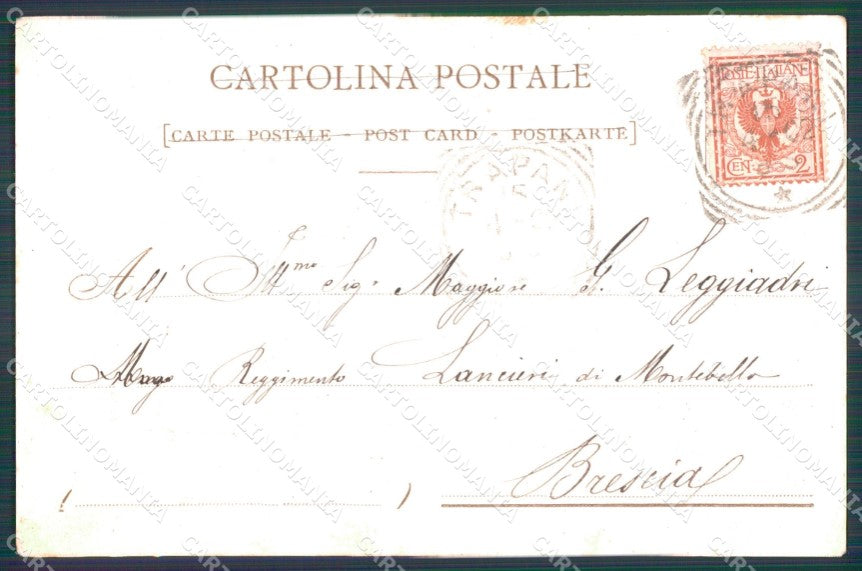 CARTOLINA POSTALE
[CARTE POSTALE - POST CARD - POSTKARTE]
POSTE ITALIANE
CEN 2
TRAPANI
All' Ill.mo Sig. Maggiore G. Leggiadri
Reggimento Lancieri di Montebello
Brescia
( )
CARTOLINOMANIA